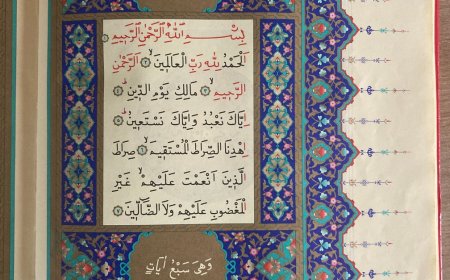 بِسْمِ اللّٰهِ الرَّحْمٰنِ الرَّحِيمِ ﴿١﴾
اَلْحَمْدُ لِلّٰهِ رَبِّ الْعَالَمِينَۙ ﴿٢﴾ اَلرَّحْمٰنِ
الرَّحِيمِۙ ﴿٣﴾ مَالِكِ يَوْمِ الدِّينِۜ ﴿٤﴾
اِيَّاكَ نَعْبُدُ وَاِيَّاكَ نَسْتَعِينُۜ ﴿٥﴾
اِهْدِنَا الصِّرَاطَ الْمُسْتَقِيمَۙ ﴿٦﴾ صِرَاطَ
الَّذِينَ اَنْعَمْتَ عَلَيْهِمْۙ غَيْرِ
الْمَغْضُوبِ عَلَيْهِمْ وَلَا الضَّٓالِّينَ ﴿٧﴾
وَهِيَ سَبْعُ اٰيَاتٍ